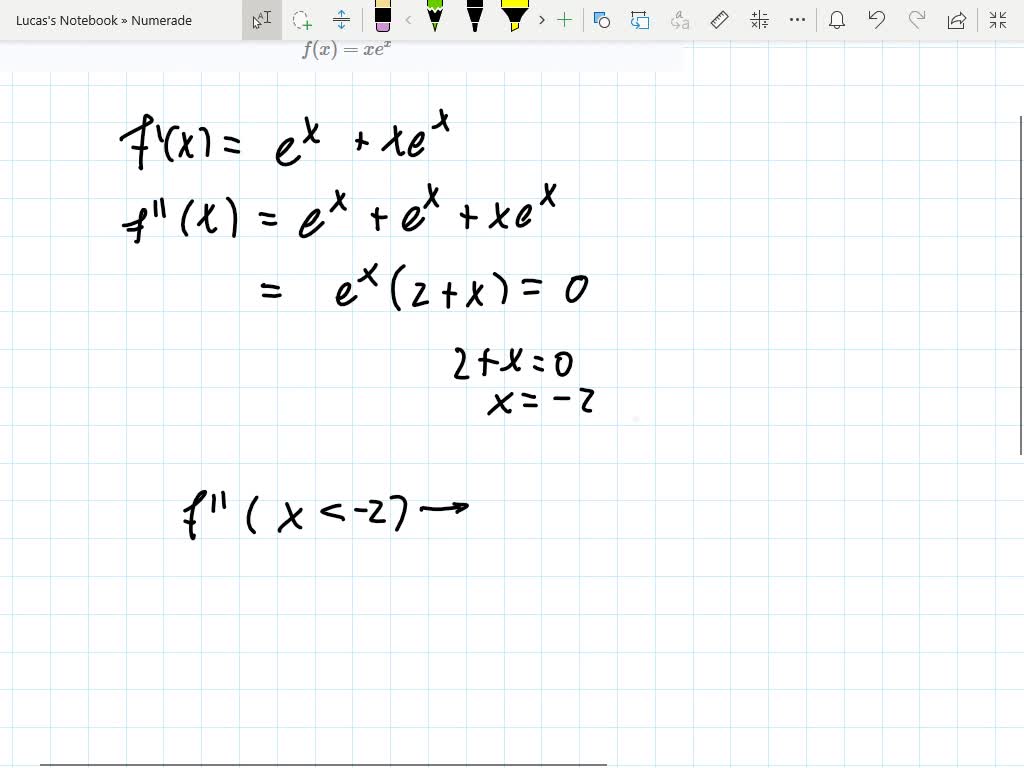 Lucas's Notebook » Numerade
f(x) = xeˣ
f'(x) = eˣ + xeˣ
f"(x) = eˣ + eˣ + xeˣ
= eˣ(2+x) = 0
2+x=0
x=-2
f"(x<-2) →